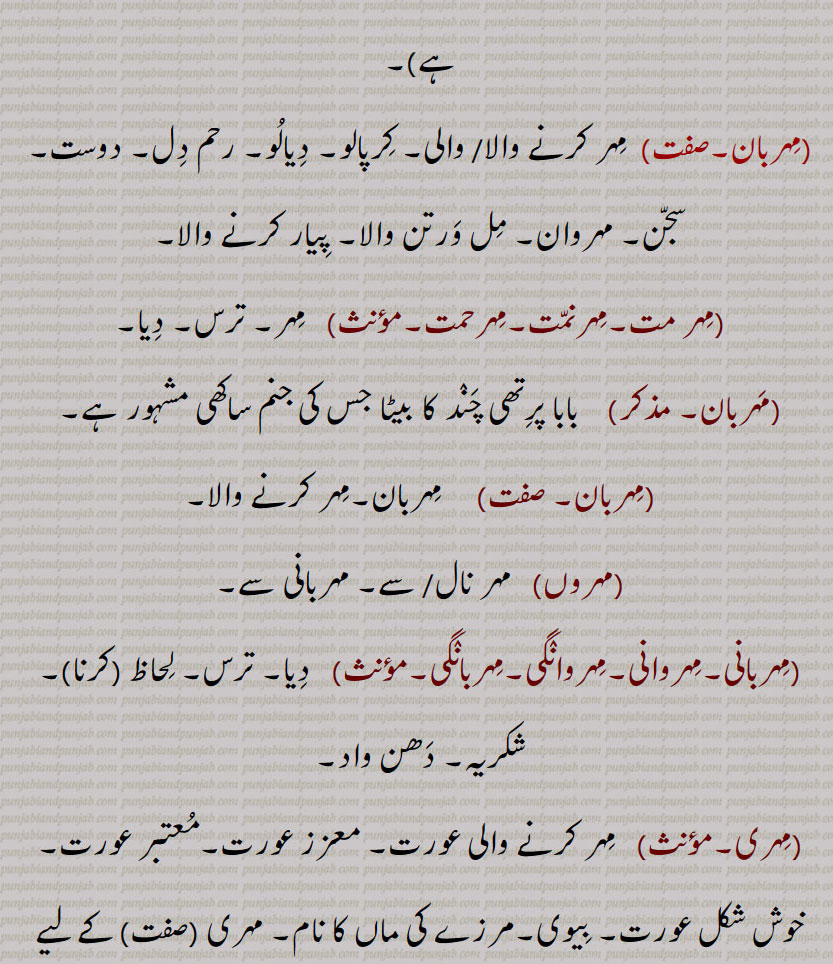 ہے)۔
(مِہربان۔صفت) مِہر کرنے والا/ والی۔ کِرپالو۔ دِیالُو۔ رحم دِل۔ دوست۔
سجّن۔ مہروان۔ مِل وَرتن والا۔ پِیار کرنے والا۔
(مِہر مت۔مِہرنمّت۔مِہرحمت۔مؤنث) مِہر۔ ترس۔ دِیا۔
(مَہربان۔ مذکر) بابا پرِتھی چَنْد کا بیٹا جس کی جنم ساکھی مشہور ہے۔
(مِہربان۔ صفت) مِہربان۔مِہر کرنے والا۔
(مہروں) مہر نال/ سے۔ مہربانی سے۔
(مِہربانی۔مِہروانی۔مِہروانْگی۔مِہربانْگی۔مؤنث) دِیا۔ ترس۔ لِحاظ (کرنا)۔
شکریہ۔ دَھن واد۔
(مِہری۔مؤنث) مِہر کرنے والی عورت۔ معزز عورت۔مُعتبر عورت۔
خوش شکل عورت۔ بِیوی۔مرزے کی ماں کا نام۔ مہری (صفت) کے لیے